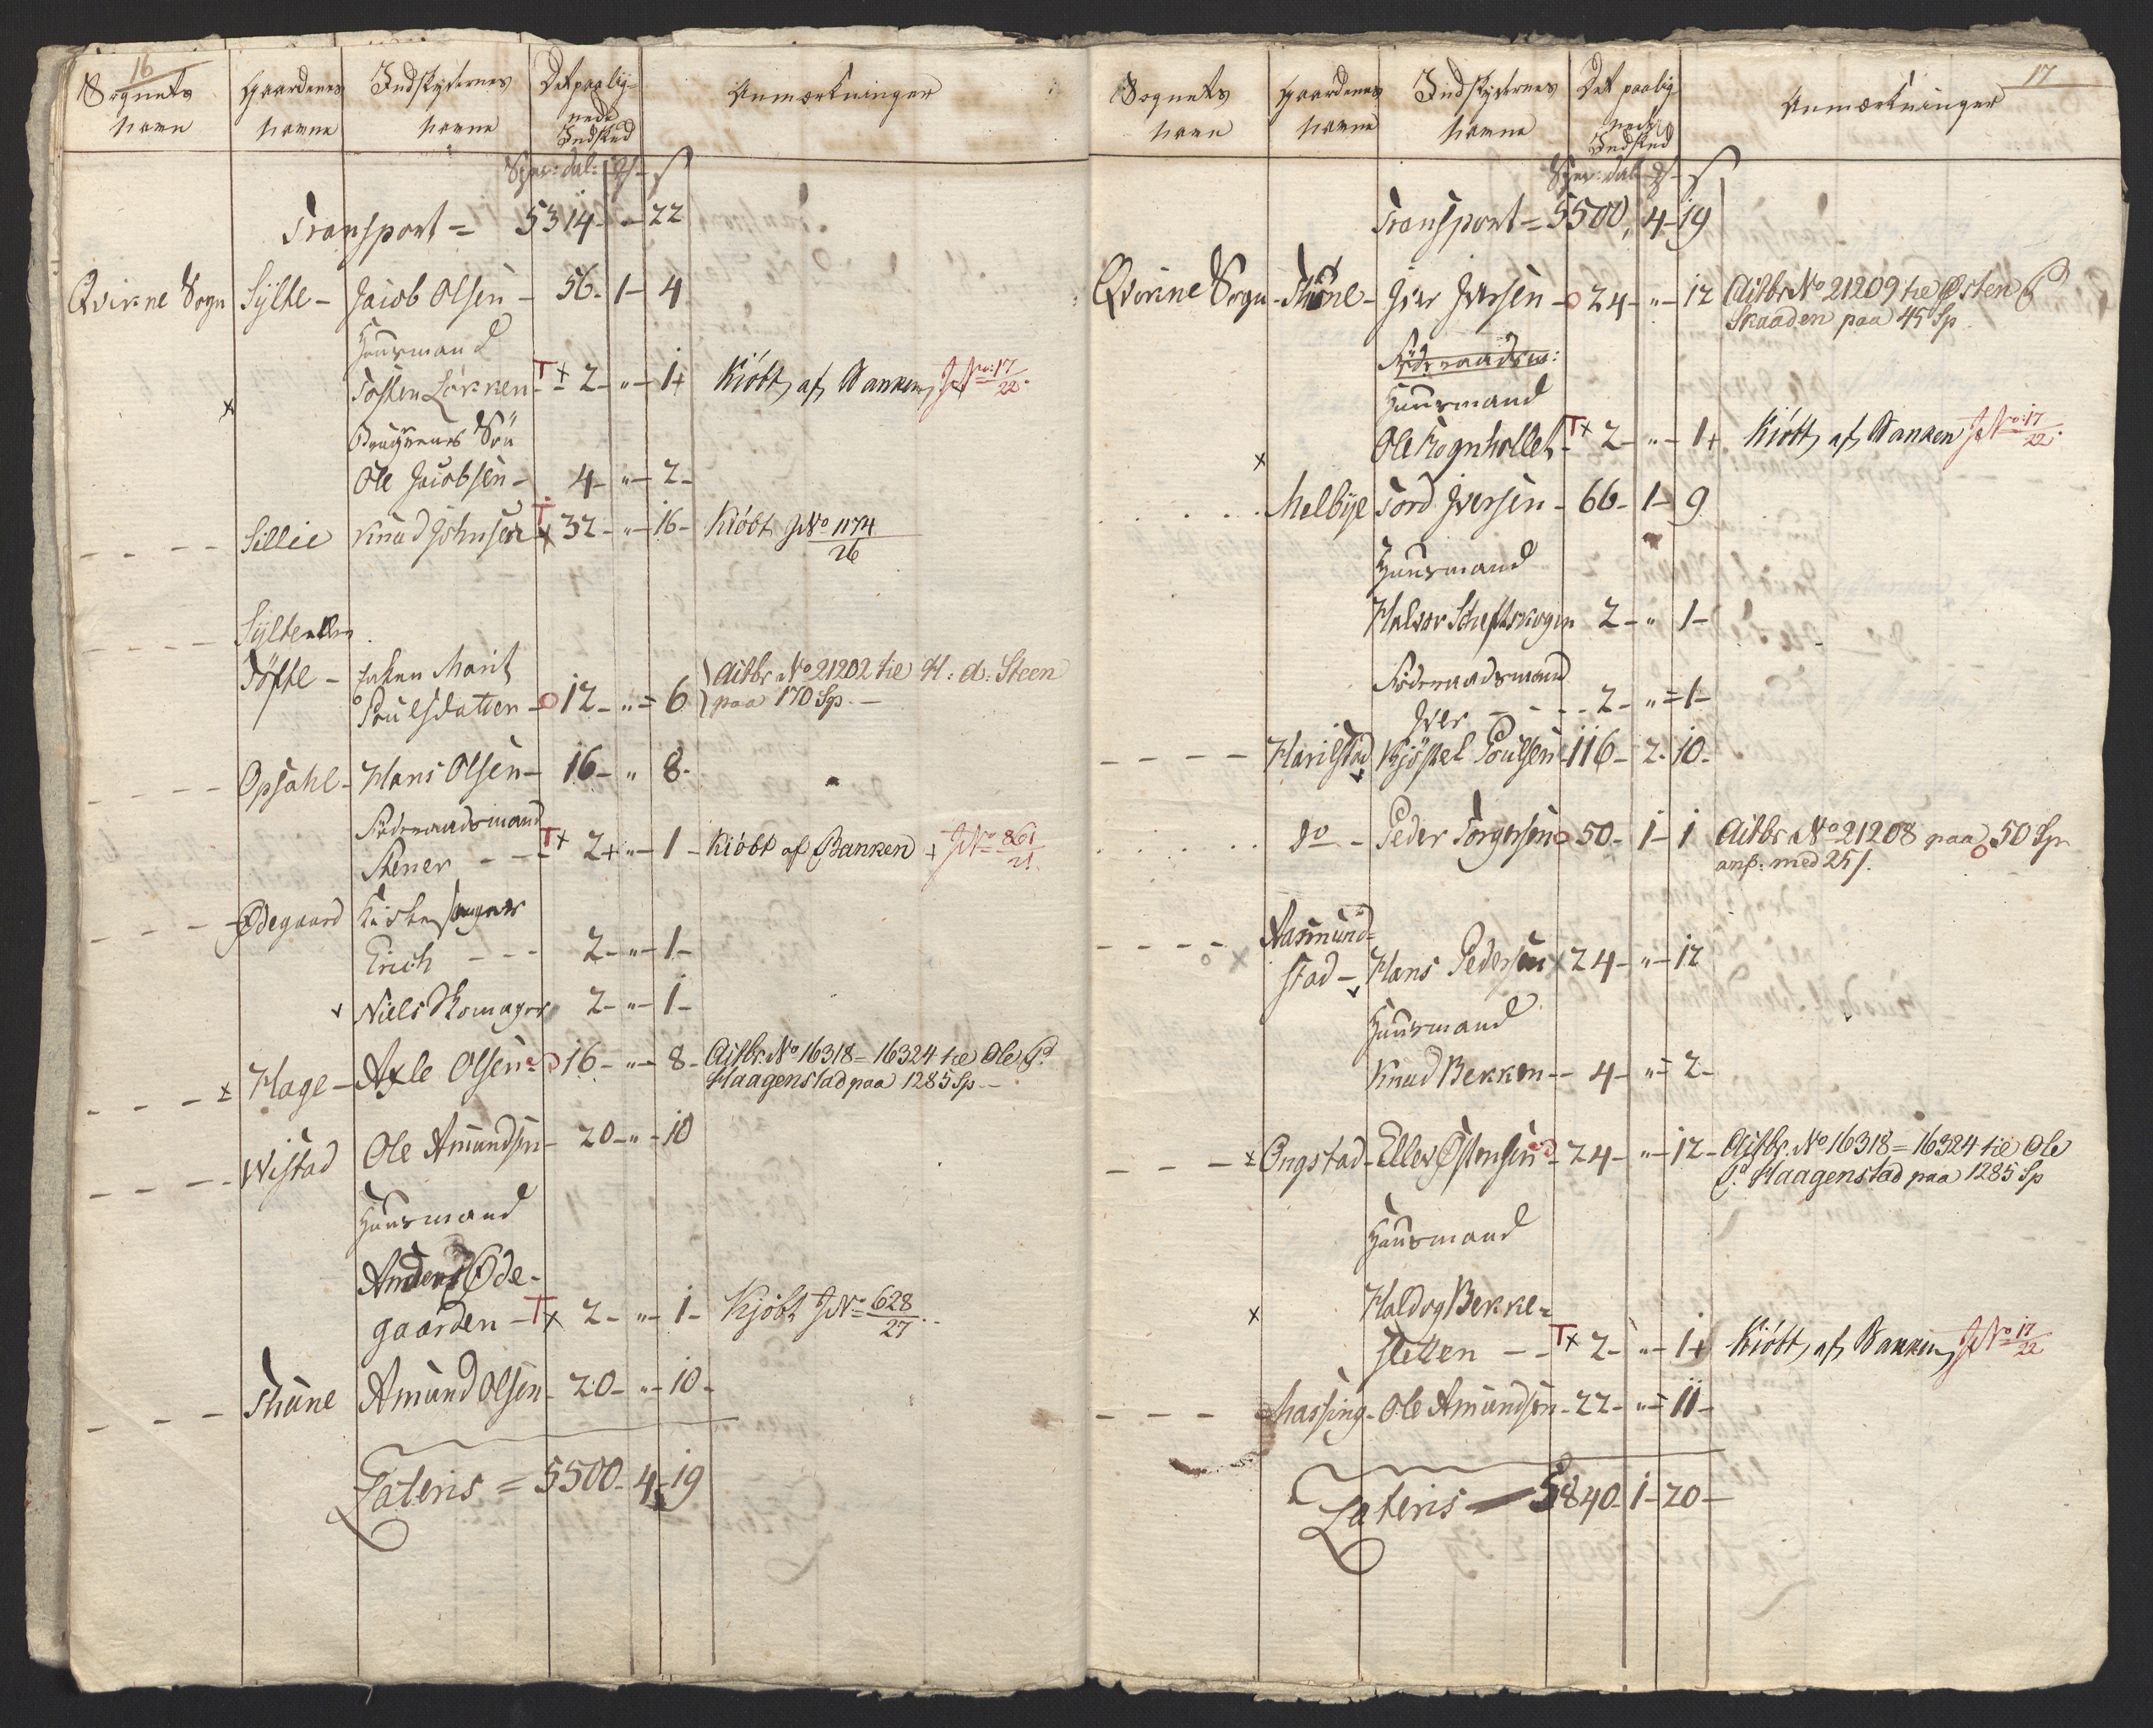 16
Sognets Navn
Gaardenes Navne
Indskydernes Navne
Det paalignede Indskud
Anmærkninger
Spec: dal:
Transport = 5314 - " - 22
Qvikne Sogn Sylte - Jacob Olsen - 56 - 1 - 4
Huusmand
Tosten Løkken - T x 2 - " - 1 + Kiøbt af Banken, J No: 17/22.
x
Brugerens Søn
Ole Jacobsen - 4 - " - 2 -
Sillie Knud Johnsen T x 32 - " - 16 - Kiøbt J No 1174/26
Sylte
Tøfte - Enken Marit
Poulsdatter - o 12 - " = 6 Actbr No 21202 til H: A: Steen
paa 170 Sp. -
Opsahl - Hans Olsen - 16 - " 8 -
Føderaadsmand
Stener - - - T x 2 + " - 1 - Kiøbt af Banken + J No 861/21
Ødegaard Kirkesanger
Erich - - - 2 - " - 1 -
Niels Skomager 2 - " - 1 -
x Hage - Axle Olsen o 16 - " - 8 - Actbr. No 16318 - 16324 til Ole P.
Haagenstad paa 1285 Sp -
Wistad Ole Amundsen - 20 - " - 10
Huusmand
Anders Øde-
gaarden - T x 2 - " - 1 - Kjøbt J No 628/27.
Thune Amund Olsen - 20 - " - 10 -
Lateris = 5500 - 4 - 19
17
Sognets Navn
Gaardenes Navne
Indskydernes Navne
Det paalignede Indskud
Anmærkninger
Spec: dal
Transport = 5500, 4 - 19
Qvikne Sogn - Thune - Iver Iversen - o 24 - " - 12 Actbr No 21209 til Østen P
Skaaden paa 45 Sp
Føderaadsm:
Huusmand
Ole Rognhollet - T x 2 - " - 1 + Kiøbt af Banken J No: 17/22.
x
Melbye Tord Iversen - 66 - 1 - 9
Huusmand
Halvor 2 - " 1 -
Føderaadsmand
Iver - - - - 2 - " = 1 -
Harilstad Kjøstel Poulsen - 116 - 2 - 10 -
do - Peder Torgersen o 50 - 1 - 1 Actbr No 21208 paa o 50 Sp
anf: med 25/.
Aasmund=
stad - Hans Pedersen x 24 - " - 12
o x
Huusmand
Knud Bekken - - 4 - " = 2 -
x Ongstad - Ellev Østensen o - 24 - " - 12 - Actbr. No 16318 = 16324 til Ole
P. Haagenstad paa 1285 Sp
Huusmand
x
Haldog Bekke=
sletten - - T x 2 - " - 1 + Kiøbt af Banken, J No 17/22
Massing - Ole Amundsen - 22 - " = 11 -
Lateris - 5840 - 1 - 20 -